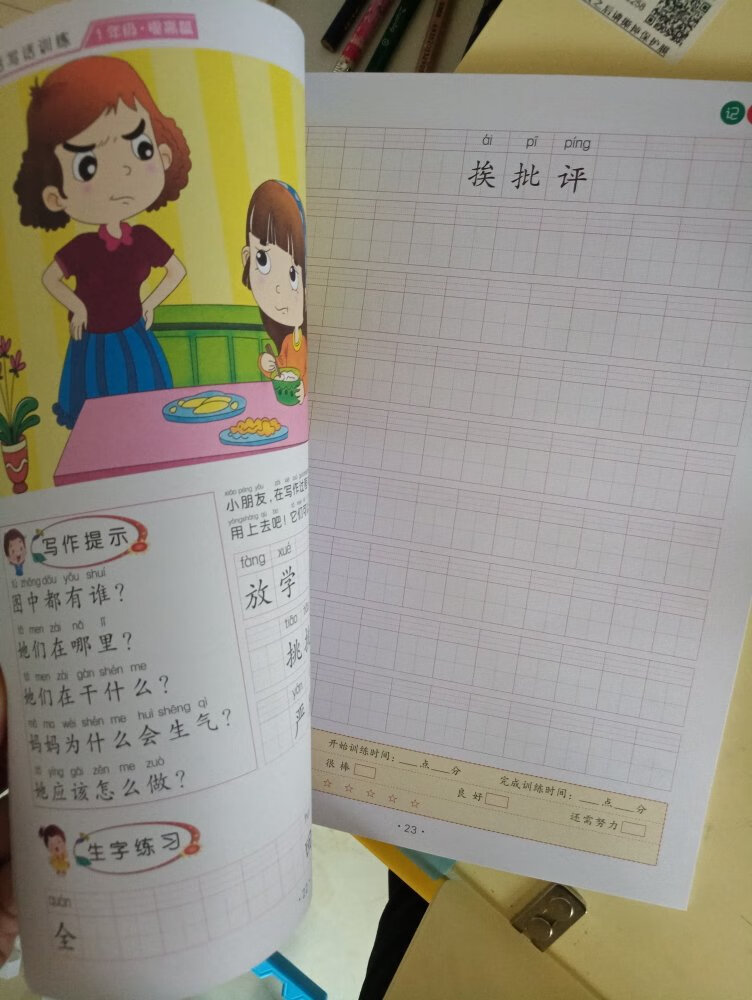 写话训练
1年级·提高篇
写作提示
tú zhōng dōu yǒu shuí
图中都有谁？
tā men zài nǎ lǐ
她们在哪里？
tā men zài gàn shén me
她们在干什么？
mā ma wèi shén me huì shēng qì
妈妈为什么会生气？
tā yīng gāi zěn me zuò
她应该怎么做？
xiǎo péng yǒu
小朋友，在写作过
用上去吧！它们可
fàng xué
放学
tiāo
挑
yán
严
生字练习
quán
全
记
ái pī píng
挨批评
开始训练时间：___点___分 完成训练时间：___点___分
很棒 良好 还需努力
☆ ☆ ☆ ☆ ☆
·23·